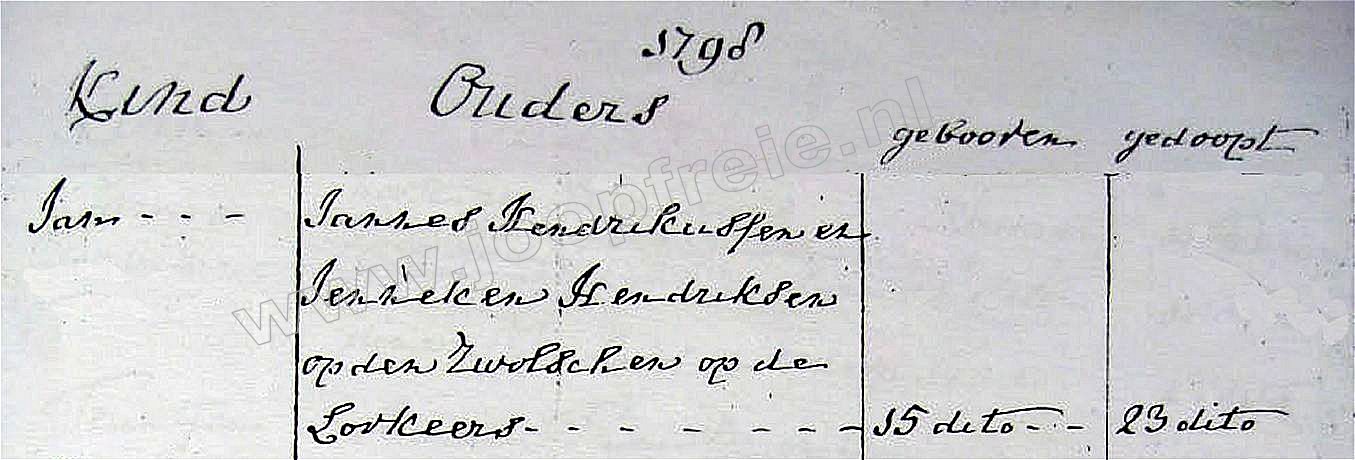 1798
Kind Ouders gebooren gedoopt
Jan - - - Jannes Hendrikussen en
Jenneken Hendriksen
op den Zwolschen op de
Lookeers - - - - - - 15 dito - - 23 dito
www.joopfreie.nl